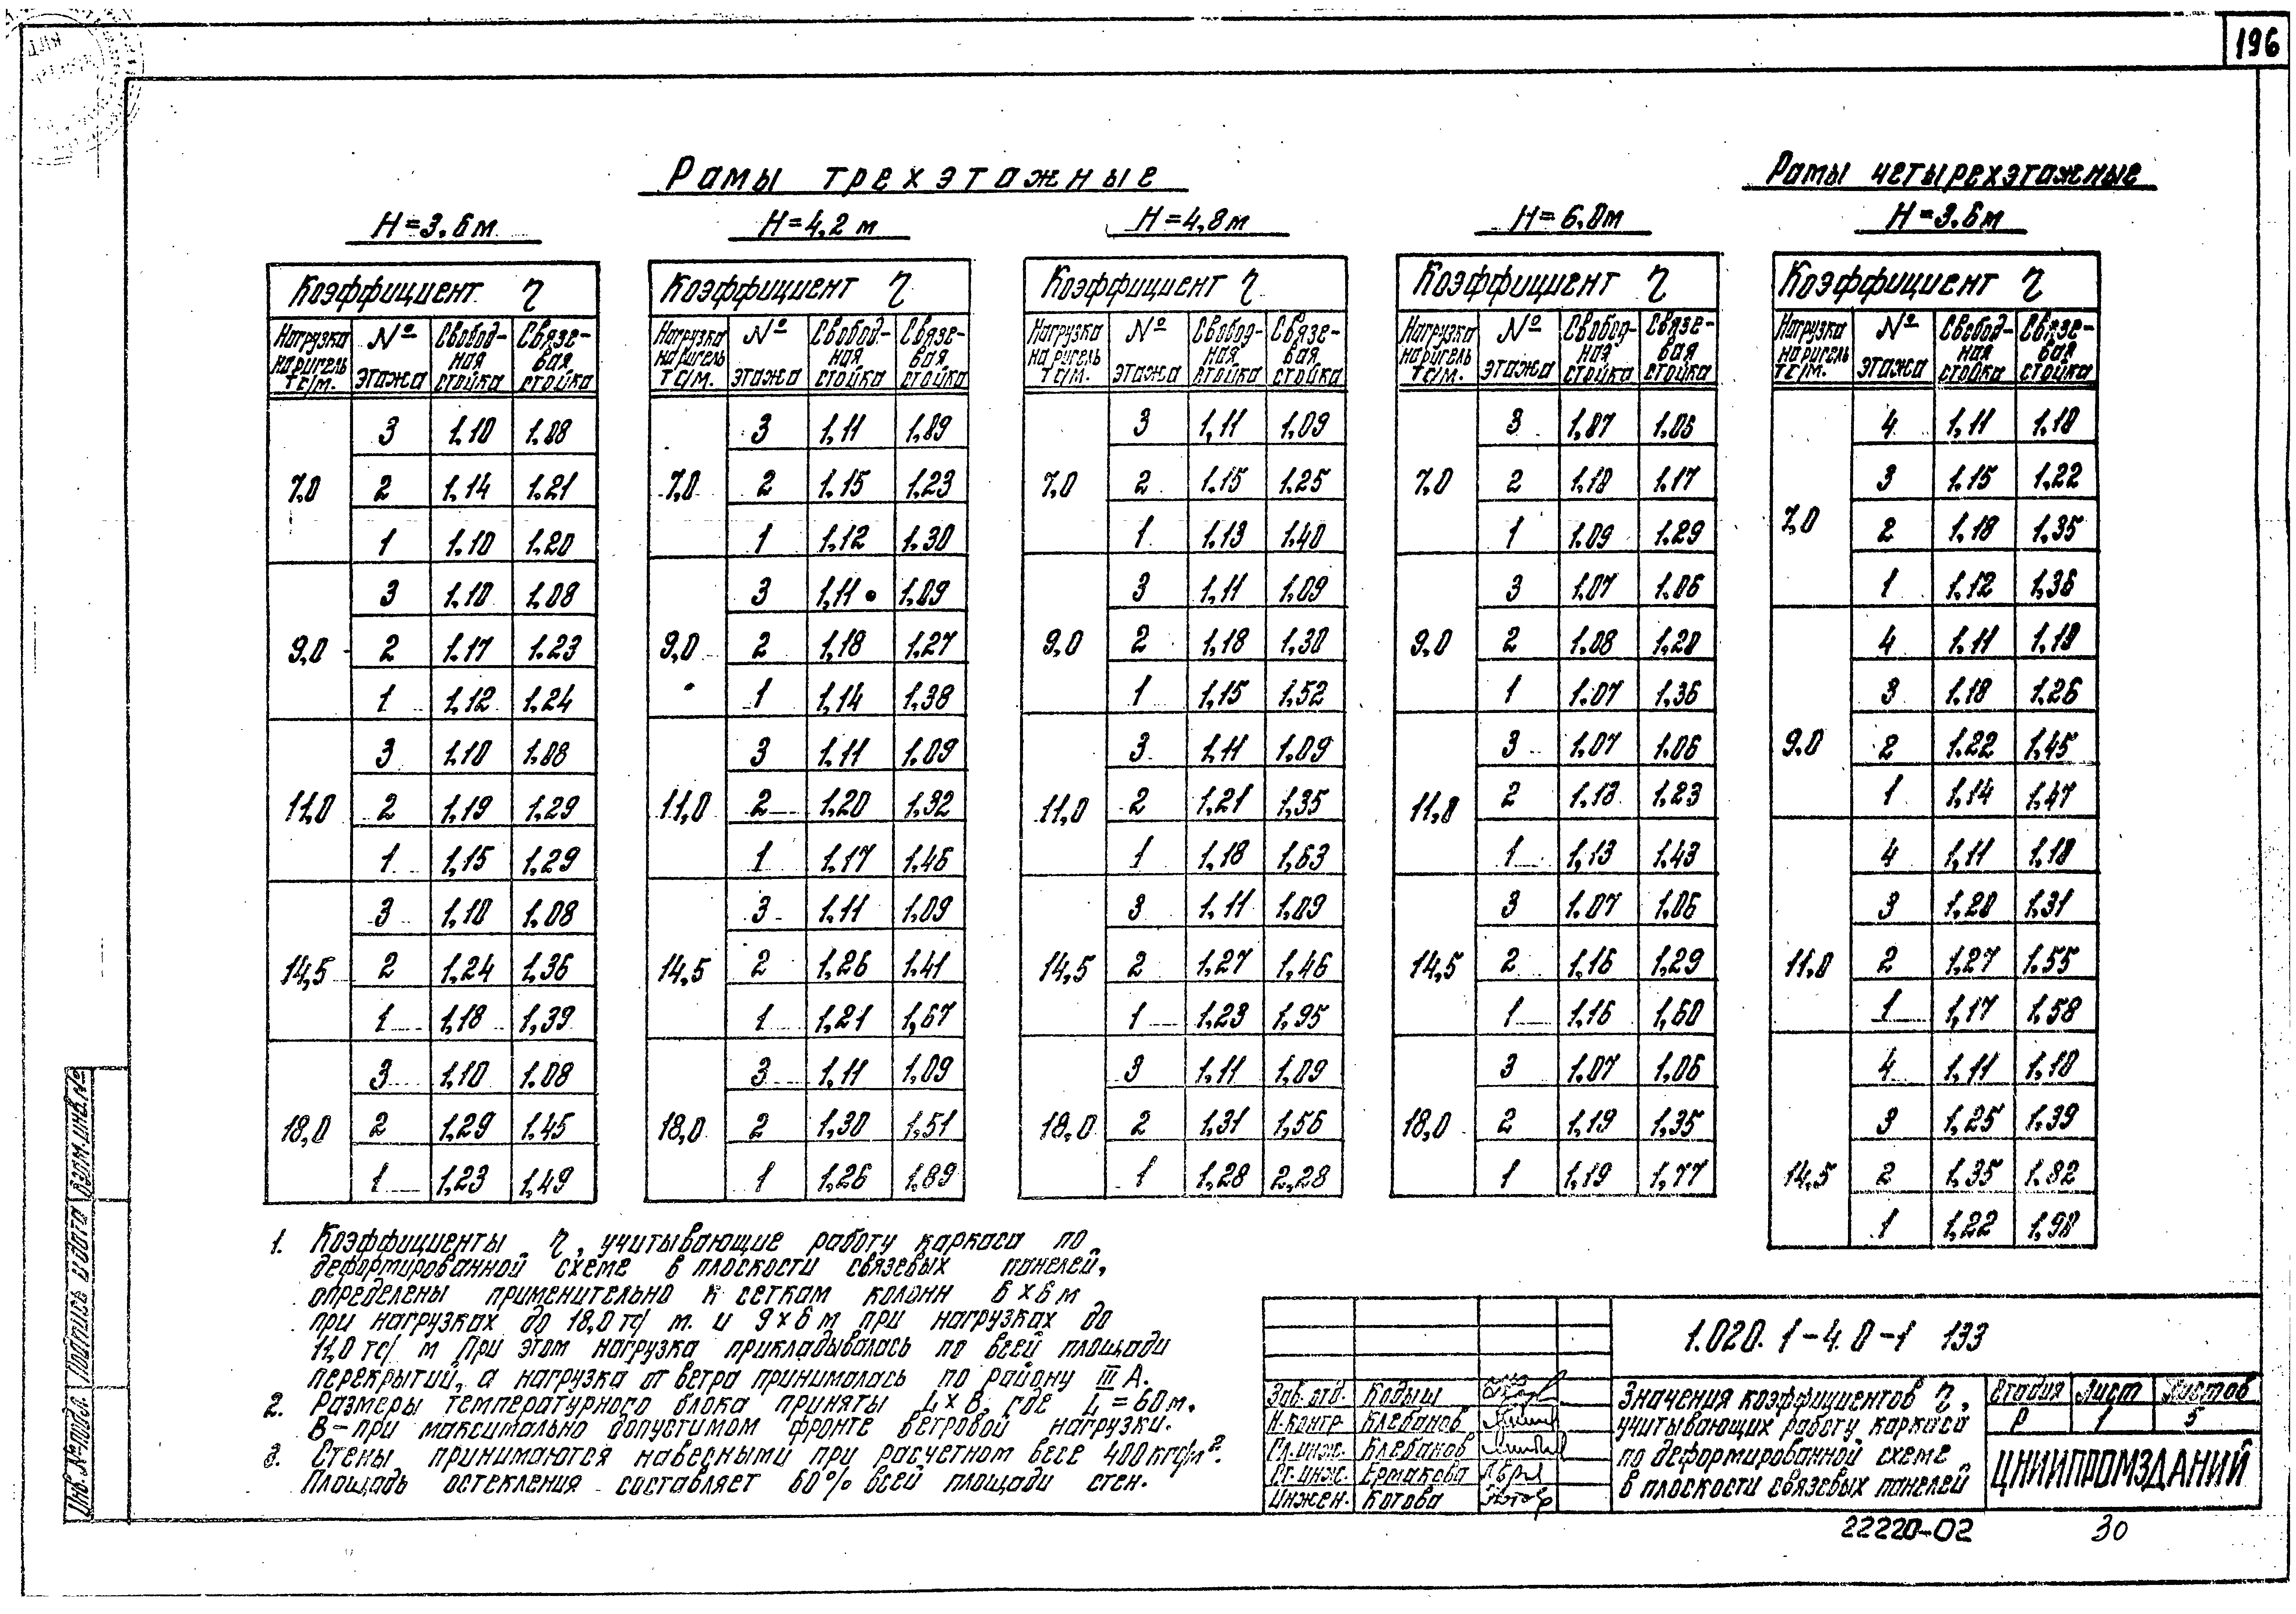 196
Рамы трехэтажные
Рамы четырехэтажные
H=3.6м
Коэффициент η
Нагрузка на ригель тс/м. № этажа Свобод-ная стойка Связе-вая стойка
7,0 3 1.10 1.08
2 1.14 1.21
1 1.10 1.20
9,0 3 1.10 1.08
2 1.17 1.23
1 1.12 1.24
11,0 3 1.10 1.08
2 1.19 1.29
1 1,15 1.29
14,5 3 1,10 1.08
2 1,24 1,36
1 1,18 1,39
18,0 3 1,10 1.08
2 1,29 1.45
1 1,23 1,49
H=4,2 м
Коэффициент η
Нагрузка на ригель тс/м. № этажа Свобод-ная стойка Связе-вая стойка
7,0 3 1,11 1.09
2 1.15 1.23
1 1.12 1.30
9,0 3 1,11 1.09
2 1,18 1.27
1 1,14 1.38
11,0 3 1.11 1.09
2 1.20 1.32
1 1.17 1.46
14,5 3 1.11 1.09
2 1,26 1.41
1 1,21 1,67
18,0 3 1,11 1.09
2 1,30 1,51
1 1,26 1,89
H=4,8м
Коэффициент η
Нагрузка на ригель тс/м. № этажа Свобод-ная стойка Связе-вая стойка
7,0 3 1,11 1.09
2 1.15 1.25
1 1.13 1.40
9,0 3 1,11 1.09
2 1,18 1,30
1 1,15 1,52
11,0 3 1,11 1.09
2 1.21 1,35
1 1,18 1,63
14,5 3 1.11 1.09
2 1,27 1,46
1 1.23 1,95
18,0 3 1.11 1.09
2 1,31 1,56
1 1,28 2,28
H=6,0м
Коэффициент η
Нагрузка на ригель тс/м. № этажа Свобод-ная стойка Связе-вая стойка
7,0 3 1,07 1.06
2 1,10 1.17
1 1.09 1.29
9,0 3 1.07 1.06
2 1.08 1.20
1 1.07 1.36
11,0 3 1.07 1.06
2 1,13 1.23
1 1,13 1.43
14,5 3 1.07 1.06
2 1,16 1.29
1 1,16 1,60
18,0 3 1.07 1,06
2 1,19 1,35
1 1,19 1,77
H=3.6м
Коэффициент η
Нагрузка на ригель тс/м. № этажа Свобод-ная стойка Связе-вая стойка
7,0 4 1,11 1.10
3 1.15 1,22
2 1.18 1.35
1 1,12 1,36
9.0 4 1,11 1,10
3 1,18 1.26
2 1.22 1,45
1 1,14 1,47
11.0 4 1,11 1,10
3 1,20 1,31
2 1,27 1,55
1 1,17 1.58
14,5 4 1,11 1,10
3 1,25 1,39
2 1,35 1.82
1 1,22 1,98
1. Коэффициенты η, учитывающие работу каркаса по
деформированной схеме в плоскости связевых панелей,
определены применительно к сеткам колонн 6×6м
при нагрузках до 18,0 тс/ м. и 9×6м при нагрузках до
11,0 тс/ м При этом нагрузка прикладывалась по всей площади
перекрытий, а нагрузка от ветра принималась по району III А.
2. Размеры температурного блока приняты L×B, где L=60м.
В-при максимально допустимом фронте ветровой нагрузки.
3. Стены принимаются навесными при расчетном весе 400кгс/м².
Площадь остекления составляет 60% всей площади стен.
1.020.1-4.0-1 133
Зав. отд. Кодыш
Н.контр. Клебанов
Гл.инж. Клебанов
Ст.инж. Ермакова
Инжен. Котова
Значения коэффициентов η,
учитывающих работу каркаса
по деформированной схеме
в плоскости связевых панелей
Стадия Лист Листов
Р 1 5
ЦНИИПРОМЗДАНИЙ
22220-02 30
Инв.№подл. Подпись и дата Взам.инв.№